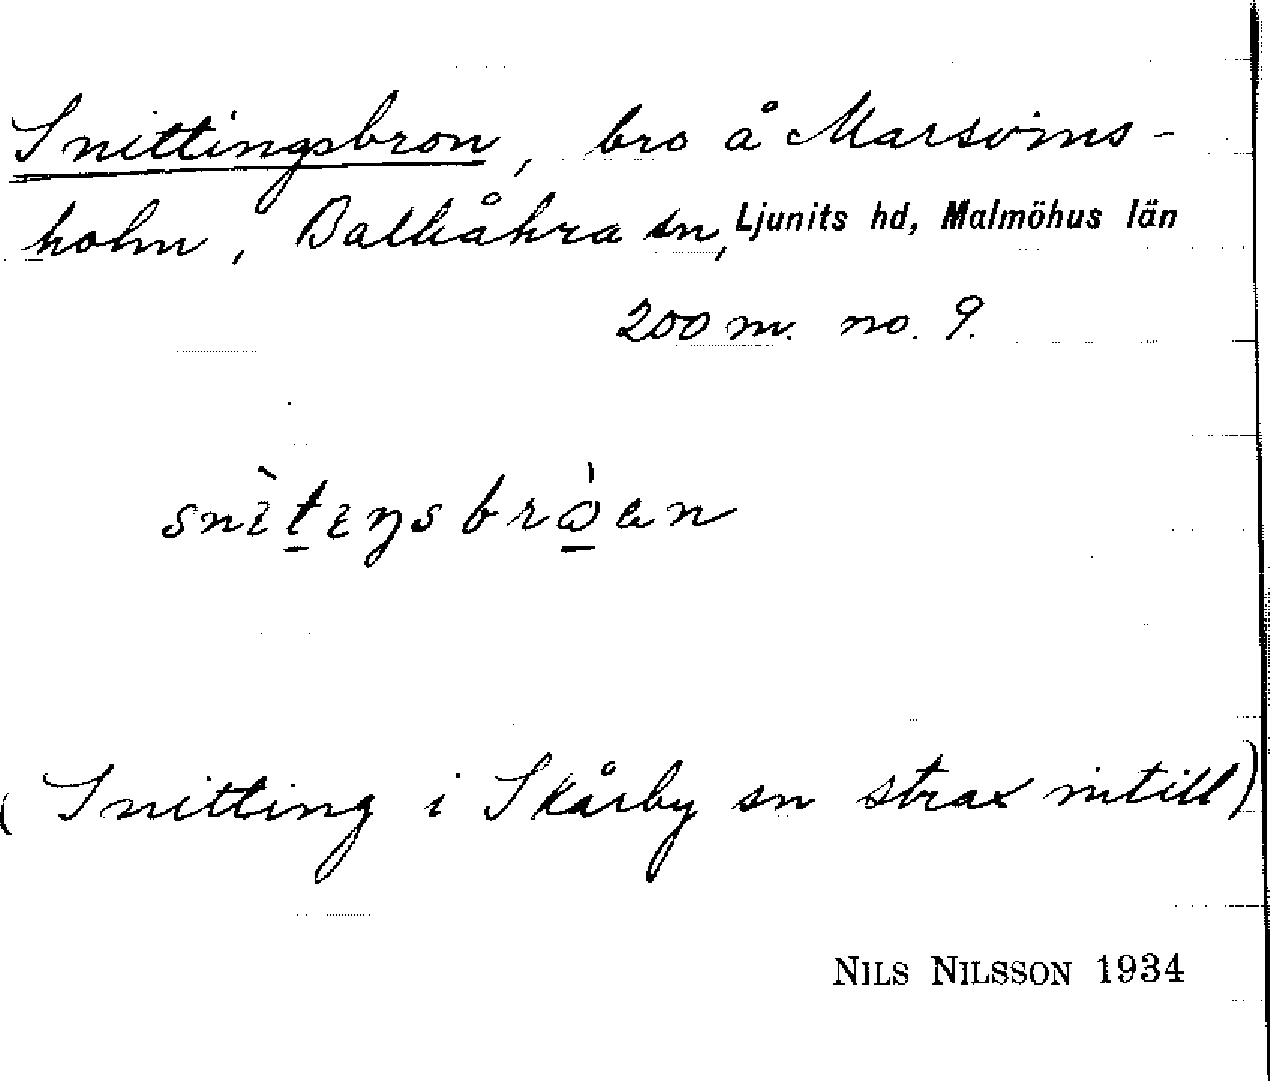 Snittingsbron, bro å Marsvins-
holm, Balkåkra sn, Ljunits hd, Malmöhus län
200 m. no. 9.
snìtɩŋsbròen
(Snitting i Skårby sn strax intill)
NILS NILSSON 1934